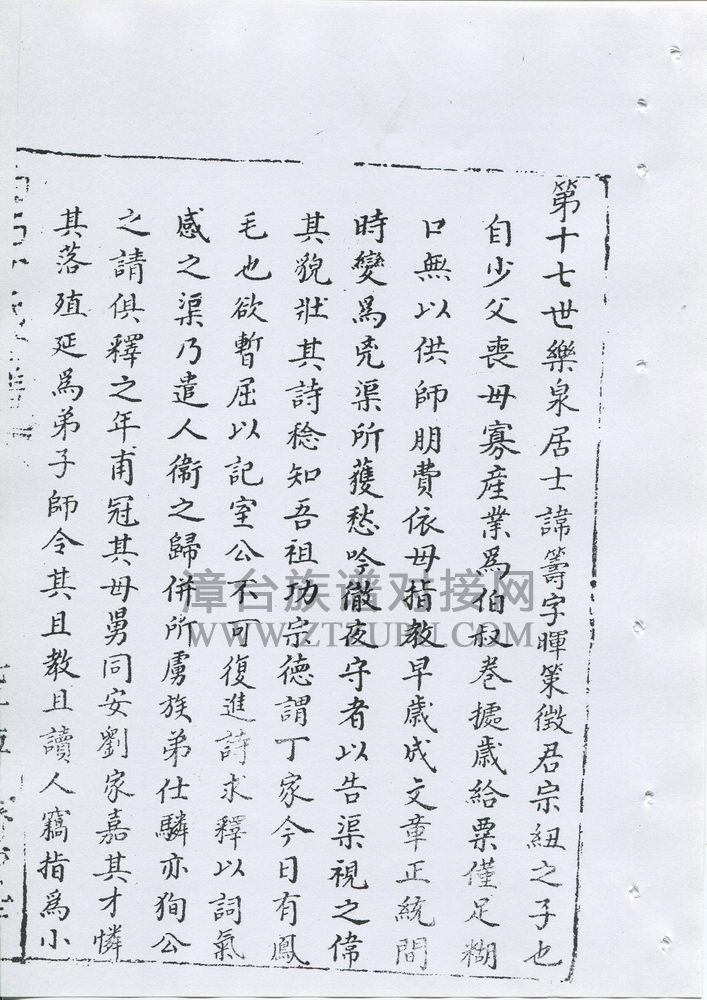 第十七世樂泉居士諱籌字暉策徵君宗紐之子也
自少父喪毋寡產業爲伯叔卷攄歲給粟僅足糊
口無以供師朋費依毋指教早歲成文章正統間
時變爲兇渠所獲愁吟徹夜守者以告渠視之偉
其貌壯其詩稔知吾祖功宗德謂丁家今日有鳳
毛也欲暫屈以記室公不可復進詩求釋以詞氣
感之渠乃遣人衞之歸併所虜族弟仕驎亦狥公
之請俱釋之年甫冠其毋舅同安劉家嘉其才憐
其落殖延爲弟子師令其且教且讀人竊指爲小
漳台族谱对接网
WWW.ZTZUPU.COM